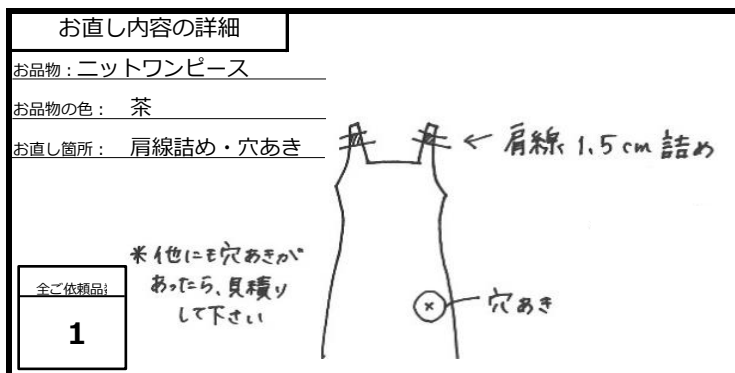 お直し内容の詳細
お品物：ニットワンピース
お品物の色： 茶
お直し箇所： 肩線詰め・穴あき
← 肩線 1.5cm 詰め
※他にも穴あきが
あったら、見積り
して下さい
穴あき
全ご依頼品
1